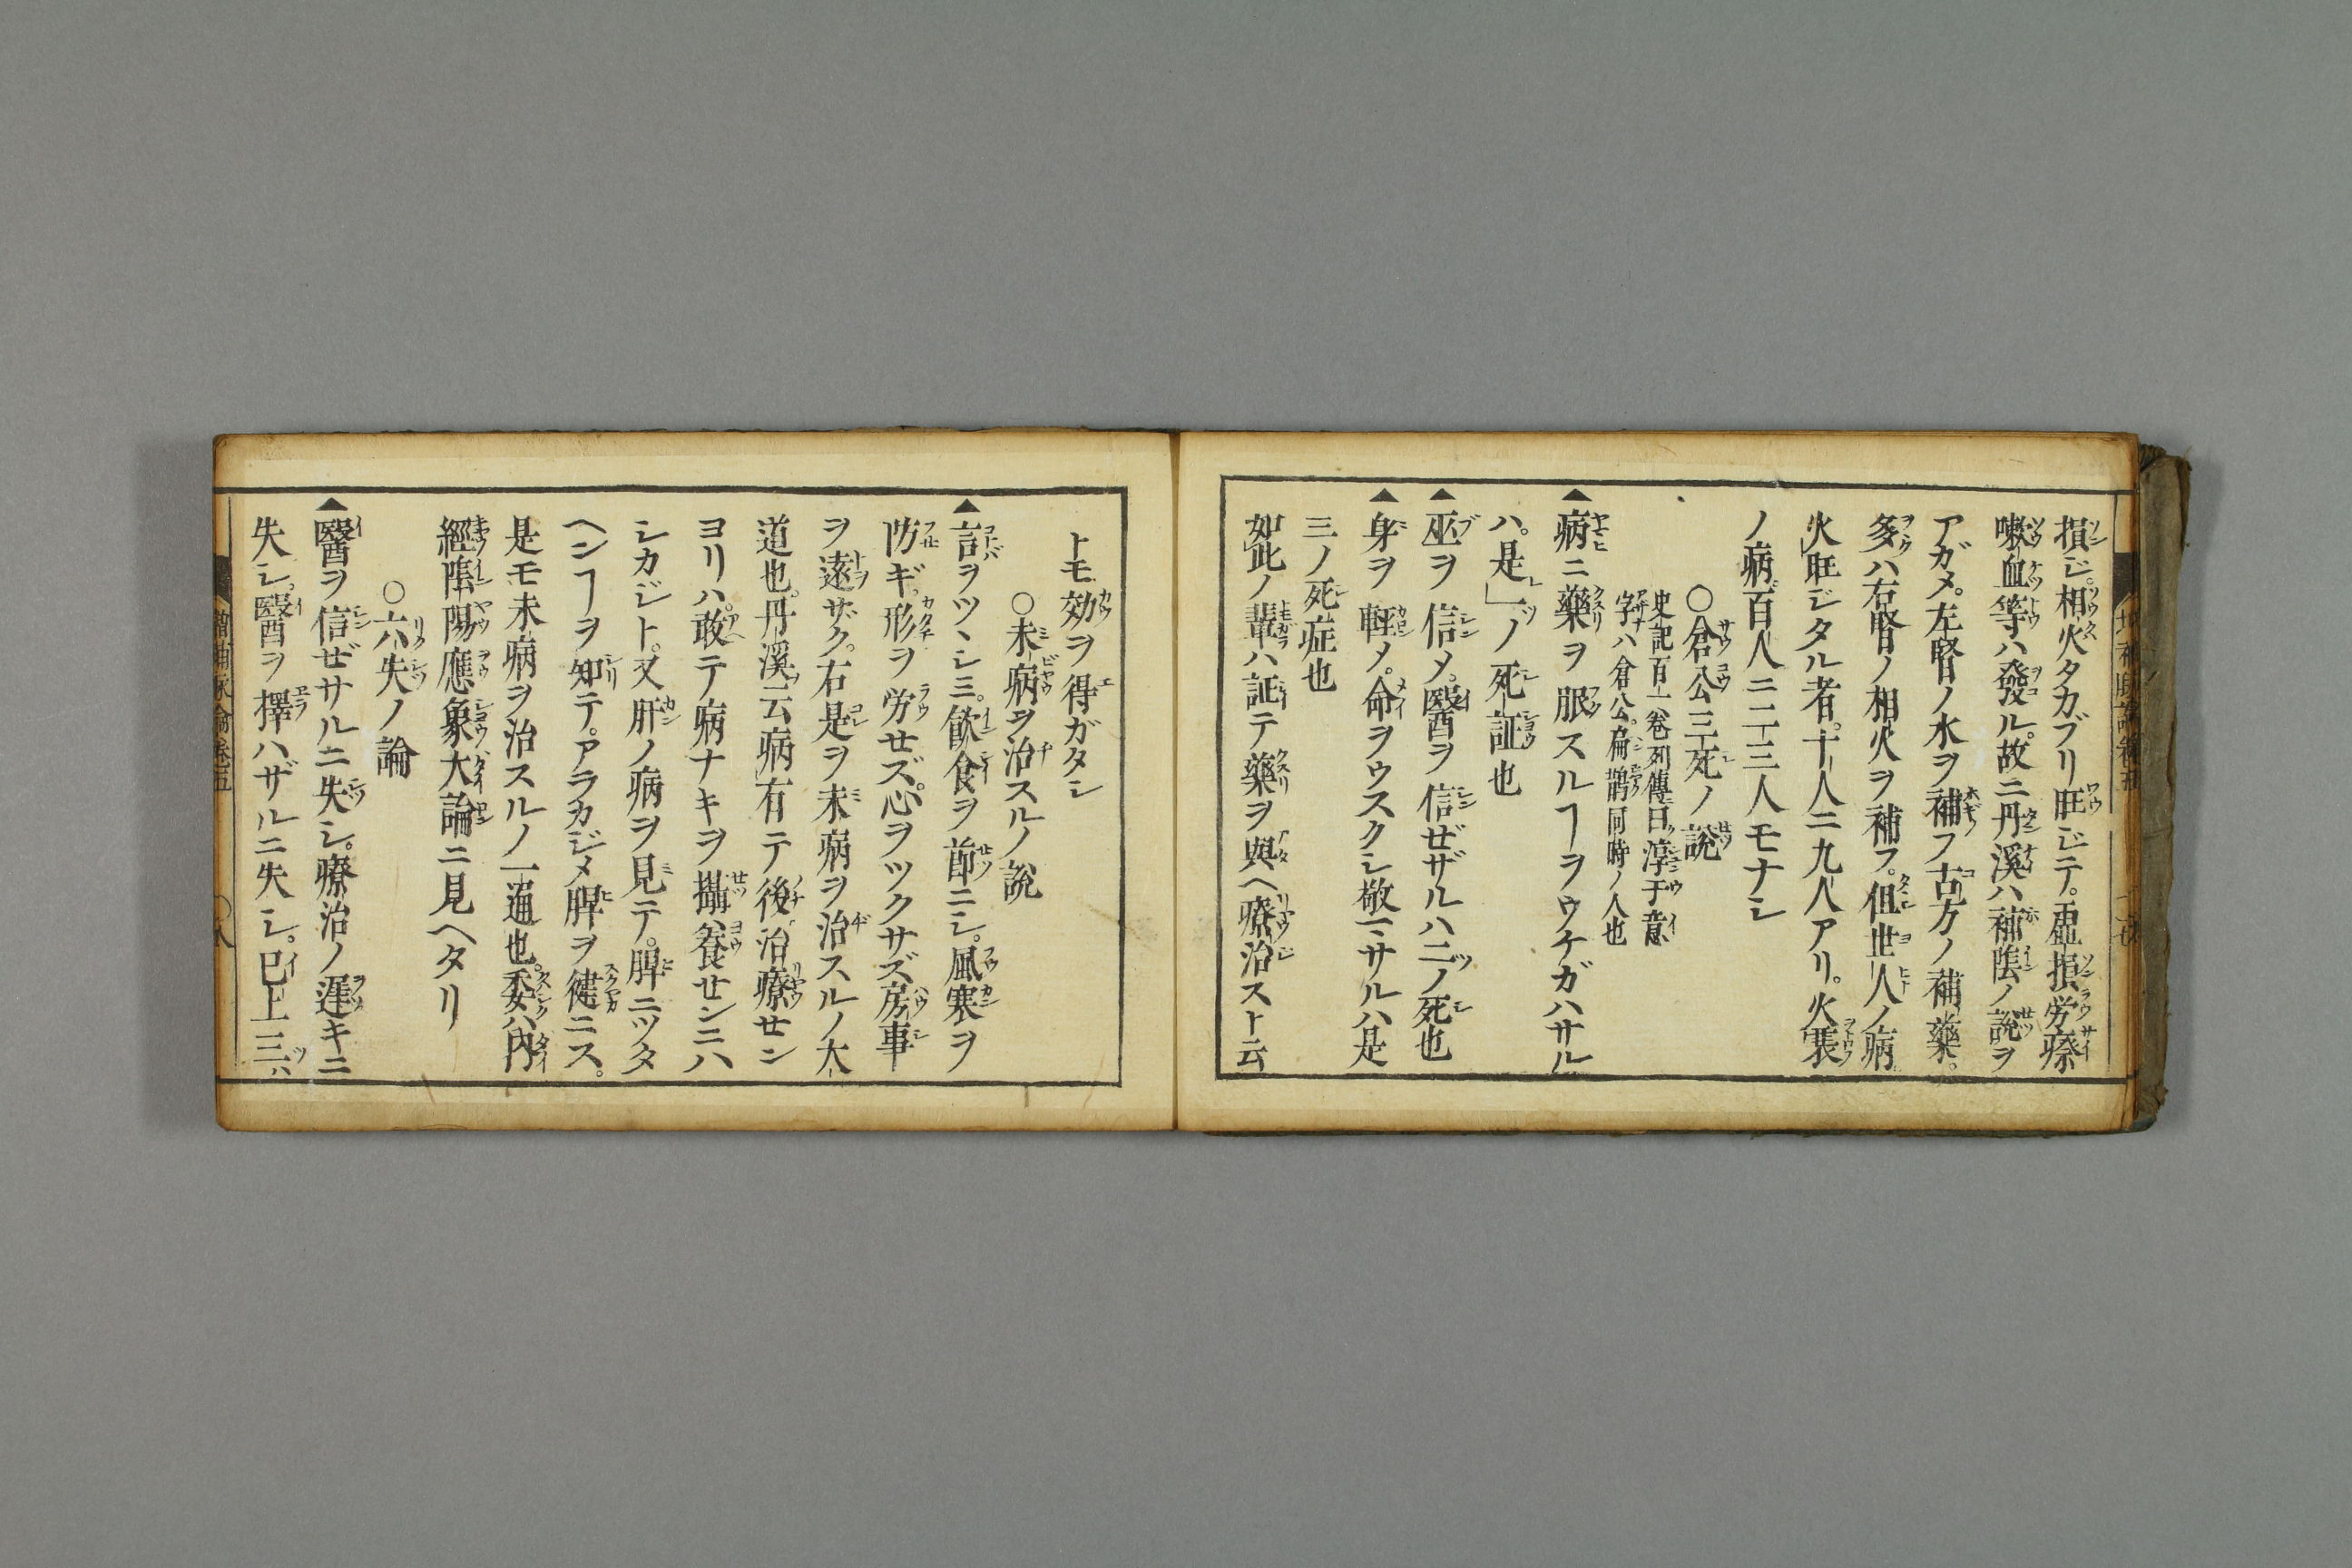 損ジ。相火タカブリ旺ジテ。虚損労瘵
嗽血等ハ發ル。故ニ丹溪ハ補陰ノ說ヲ
アガメ。左腎ノ水ヲ補フ古方ノ補藥。
多ハ右腎ノ相火ヲ補フ。但世人ノ病
火旺ジタル者。十人ニ九人アリ。火衰
ノ病百人ニ二三人モナシ
○倉公三死ノ說
史記百五卷列傳曰淳于意
字ハ倉公。扁鵲同時ノ人也
▲病ニ藥ヲ服スルヿヲウケガハサル
ハ。是一ノ死証也
▲巫ヲ信メ。醫ヲ信ぜザルハ二ノ死也
▲身ヲ軽メ。命ヲウスクシ敬マサルハ是
三ノ死症也
如此ノ輩ハ証テ藥ヲ與ヘ療治スト云
トモ効ヲ得ガタシ
○未病ヲ治スルノ說
▲言ヲツヽシミ。飲食ヲ節ニシ。風寒ヲ
防ギ。形ヲ労せズ。心ヲツクサズ房事
ヲ遠ザク。右是ヲ未病ヲ治スルノ大
道也。丹溪云病有テ後治療せン
ヨリハ。敢テ病ナキヲ攝養せンニハ
シカジト。又肝ノ病ヲ見テ。脾ニツタ
ヘンヿヲ知テ。アラカジメ脾ヲ健ニス。
是モ未病ヲ治スルノ一通也。委ハ内
經陰陽應象大論ニ見ヘタリ
○六失ノ論
▲醫ヲ信ぜサルニ失シ。療治ノ遅キニ
失シ。醫ヲ擇ハザルニ失シ。巳上三ハ